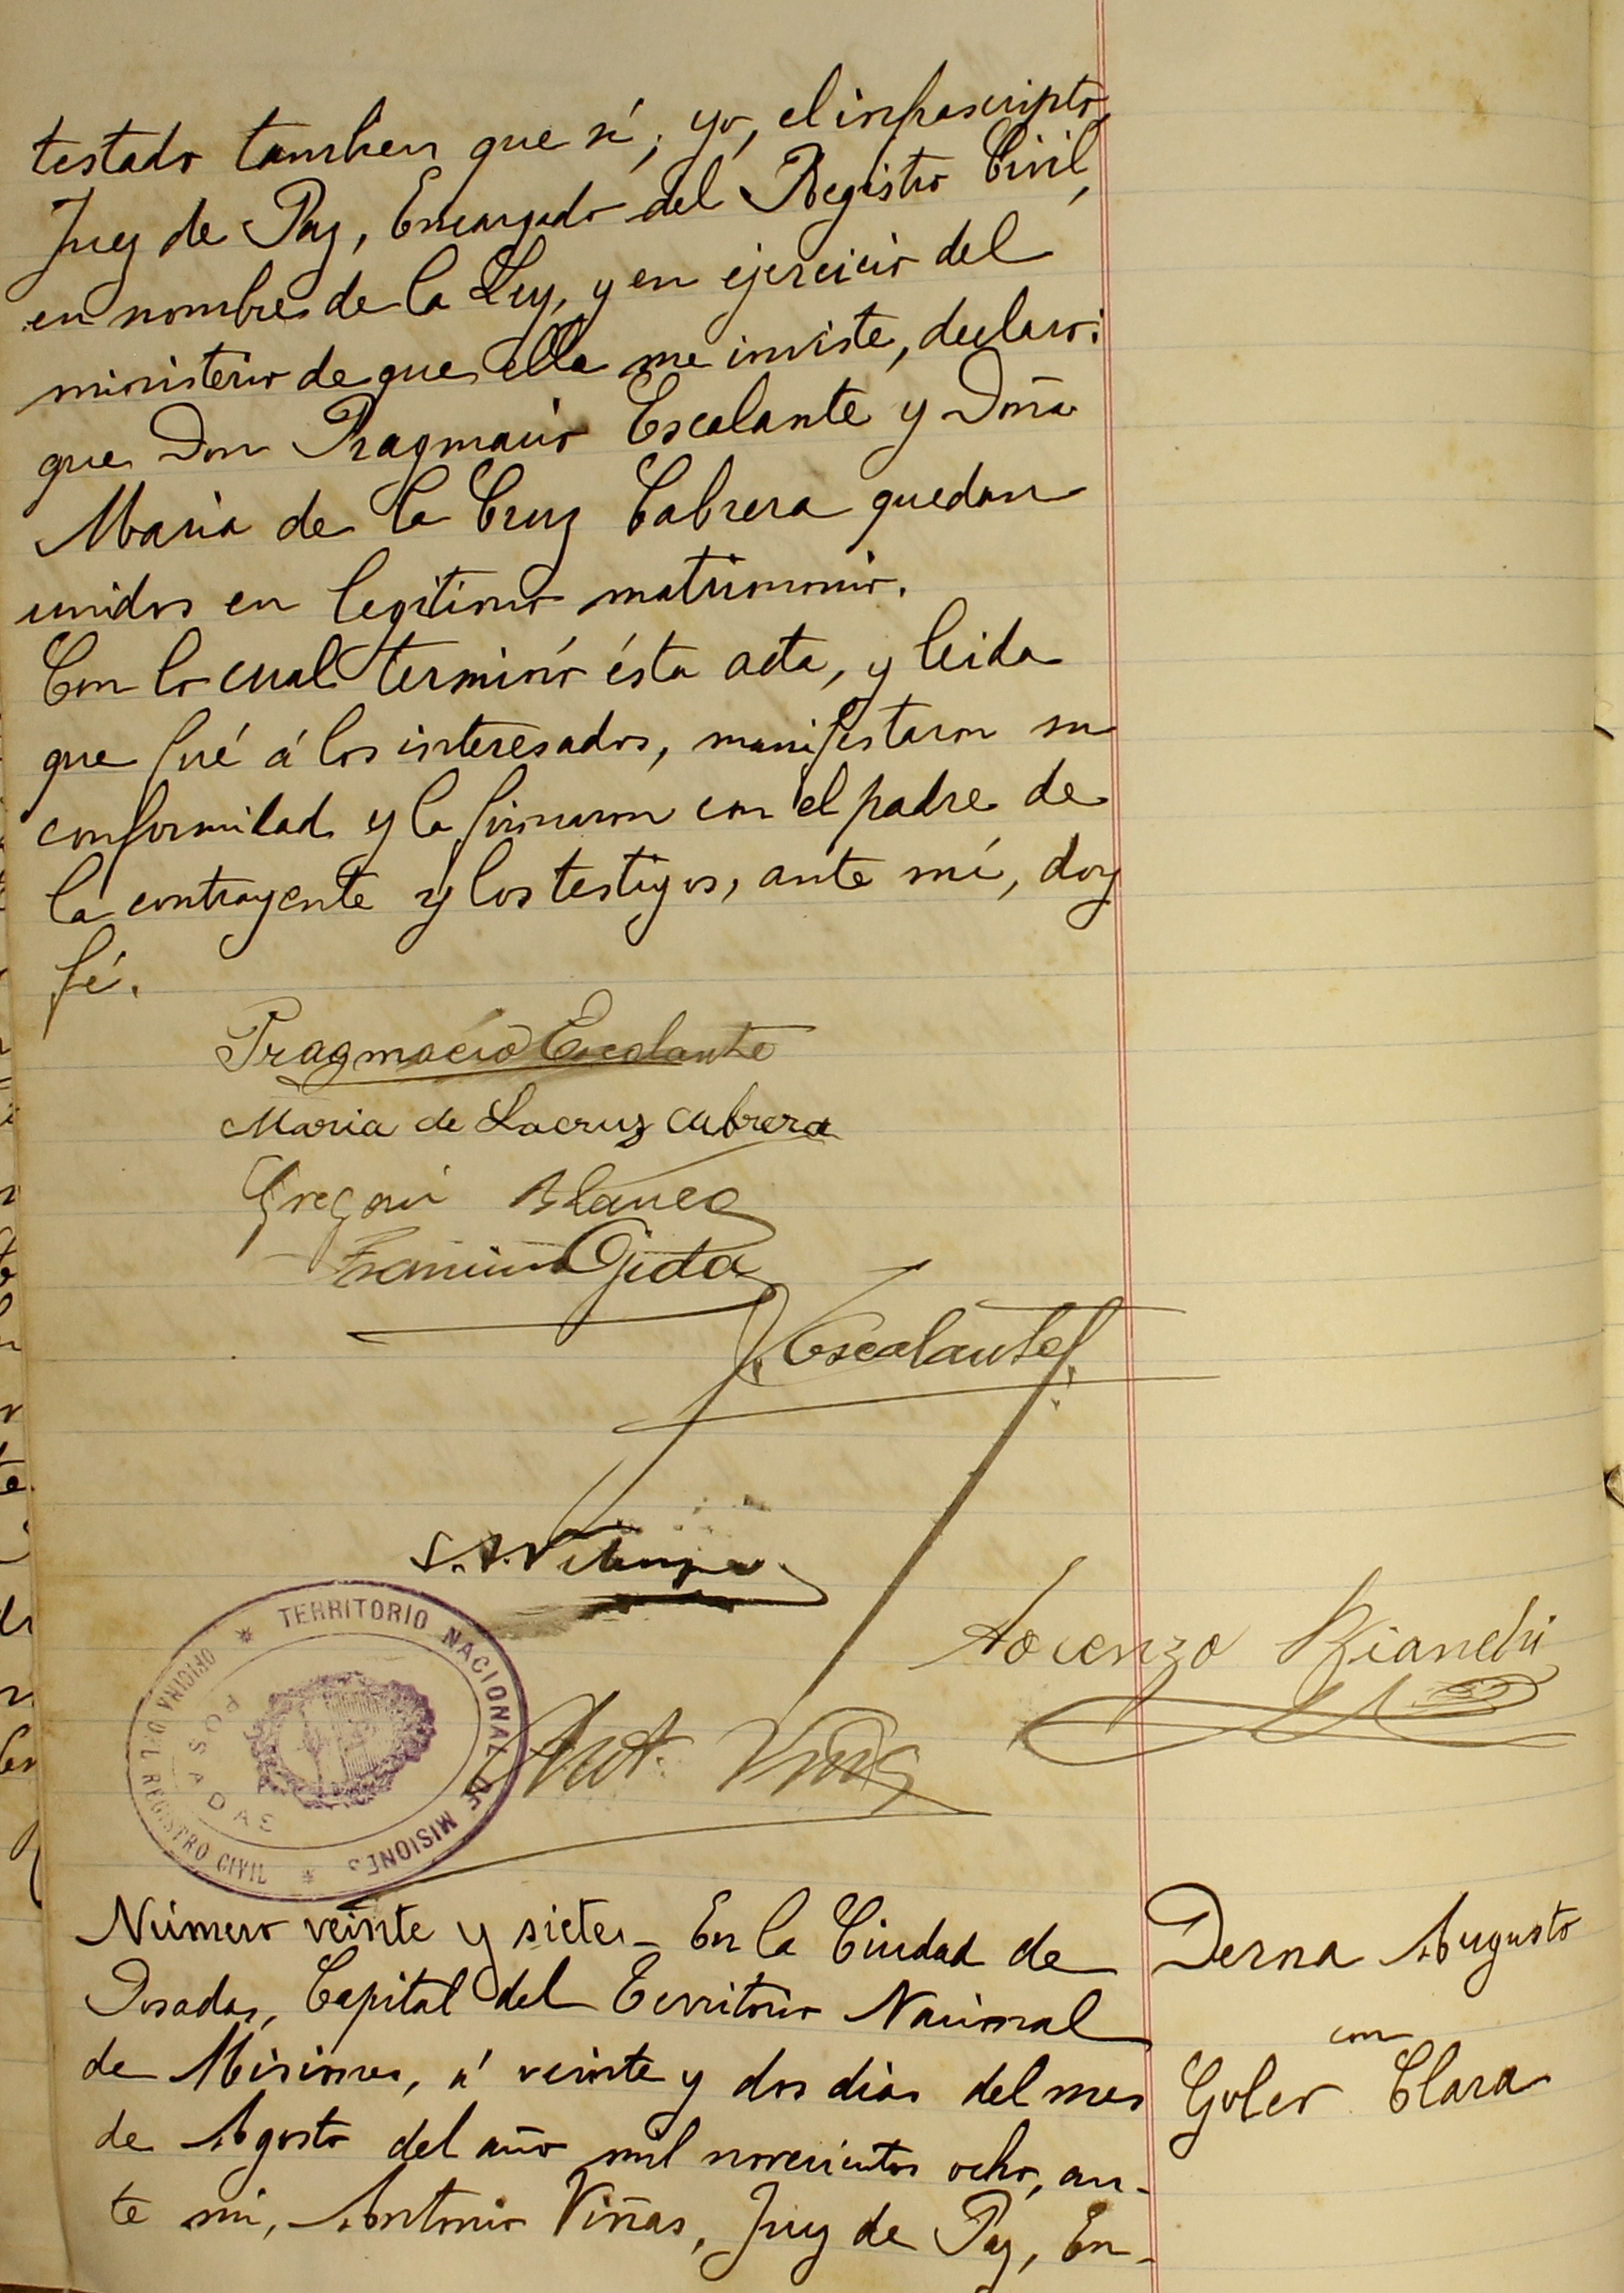 testado tambien que sí; yo, el infrascripto,
Juez de Paz, Encargado del Registro Civil,
en nombre de la Ley, y en ejercicio del
ministerio de que ella me inviste, declaro:
que Don Pragmacio Escalante y Doña
Maria de la Cruz Cabrera quedan
unidos en legitimo matrimonio.
Con lo cual terminó ésta acta, y leida
que fué á los interesados, manifestaron su
conformidad y la firmaron con el padre de
la contrayente y los testigos, ante mí, doy
fé.
Pragmacio Escalante
Maria de Lacruz Cabrera
Gregori Blanco
Ojeda
J. Escalante
Lorenzo Bianchi
Ant. Viñas
TERRITORIO NACIONAL DE MISIONES
OFICINA DEL REGISTRO CIVIL
POSADAS
Número veinte y siete – En la Ciudad de
Posadas, Capital del Territorio Nacional
de Misiones, á veinte y dos dias del mes
de Agosto del año mil novecientos ocho, an-
te mi, Antonio Viñas, Juez de Paz, En-
Derna Augusto
con
Goler Clara